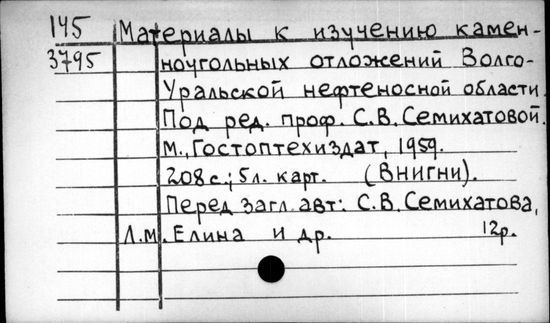 145 Материалы к изучению камен-
3795 ноугольных отложений Волго-
Уральской нефтеносной области.
Под ред. проф. С.В. Семихатовой.
М., Гостоптехиздат, 1959.
208 с.; 5 л. карт. (ВНИГНИ).
Перед загл. авт: С.В. Семихатова,
Л.М. Елина и др. 12 р.